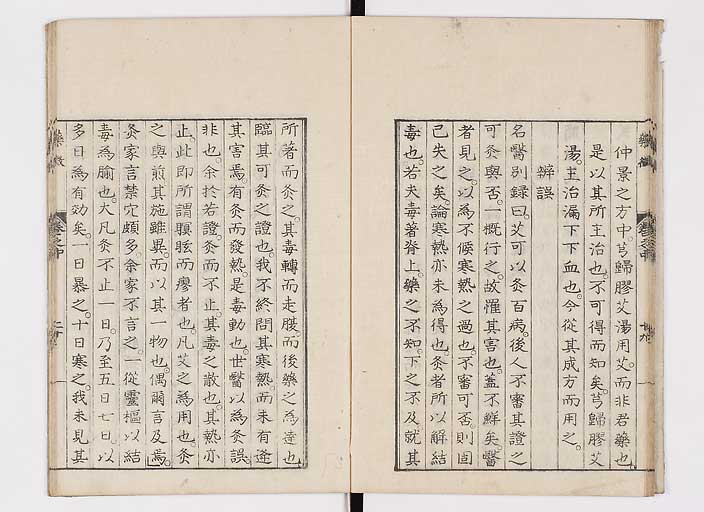 仲景之方中。芎歸膠艾湯用艾。而非君藥也。
是以其所主治也。不可得而知矣。芎歸膠艾
湯。主治漏下下血也。今從其成方而用之。
辨誤
名醫別録曰。艾可以灸百病。後人不審其證之
可灸與否。一概行之。故罹其害也。蓋不鮮矣。醫
者見之。以為不候寒熱之過也。不審可否。則固
已失之矣。論寒熱亦未為得也。灸者所以解結
毒也。若夫毒著脊上。藥之不知。下之不及。就其
藥徴
卷之中
十九
所著而灸之。其毒轉而走腹。而後藥之為達也。
臨其可灸之證也。我不終問其寒熱。而未有逢
其害焉。有灸而發熱。是毒動也。世醫以為灸誤。
非也。余於若證灸而不止。其毒之散也。其熱亦
止。此即所謂瞑眩而瘳者也。凡艾之為用也。灸
之與煎其施雖異。而以其一物也。偶爾言及焉。
灸家言禁穴頗多。余家不言之。一從靈樞以結
毒為腧也。大凡灸不止一日。乃至五日七日。以
多日為有効矣。一日暴之。十日寒之。我未見其
藥徴
卷之中
二十